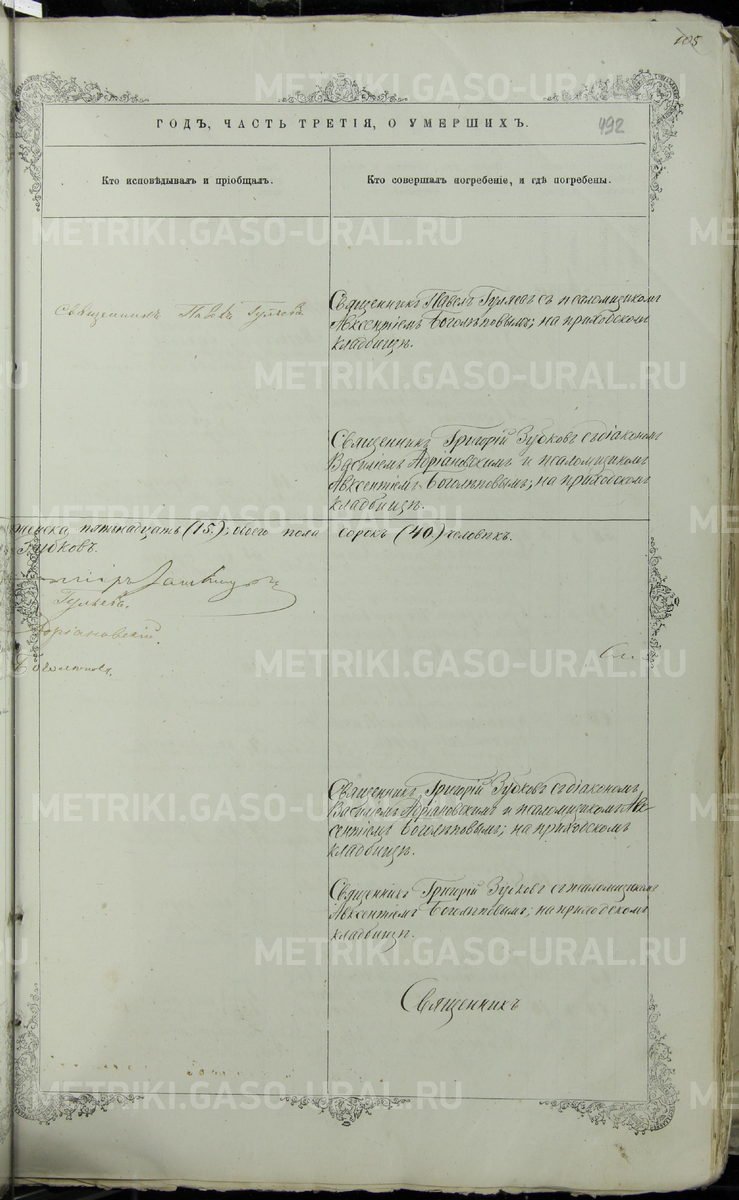 105
ГОДЪ, ЧАСТЬ ТРЕТІЯ, О УМЕРШИХЪ.
492
Кто исповѣдывалъ и пріобщалъ.
Кто совершалъ погребеніе, и гдѣ погребены.
Священникъ Павелъ Гуляевъ
Священникъ Павелъ Гуляевъ съ псаломщикомъ
Авксентіемъ Боголѣповымъ; на приходскомъ
кладбищѣ.
Священникъ Григорій Зубковъ съ діакономъ
Василіемъ Адріановскимъ и псаломщикомъ
Авксентіемъ Боголѣповымъ; на приходскомъ
кладбищѣ.
женска пятьнадцать (15); обоего пола сорокъ (40) человѣкъ.
Зубковъ.
Гуляевъ.
Адріановскій
Боголѣповъ.
Священникъ Григорій Зубковъ съ діакономъ
Василіемъ Адріановскимъ и псаломщикомъ Авк-
сентіемъ Боголѣповымъ; на приходскомъ
кладбищѣ.
Священникъ Григорій Зубковъ съ псаломщикомъ
Авксентіемъ Боголѣповымъ; на приходскомъ
кладбищѣ.
Священникъ
METRIKI.GASO-URAL.RU